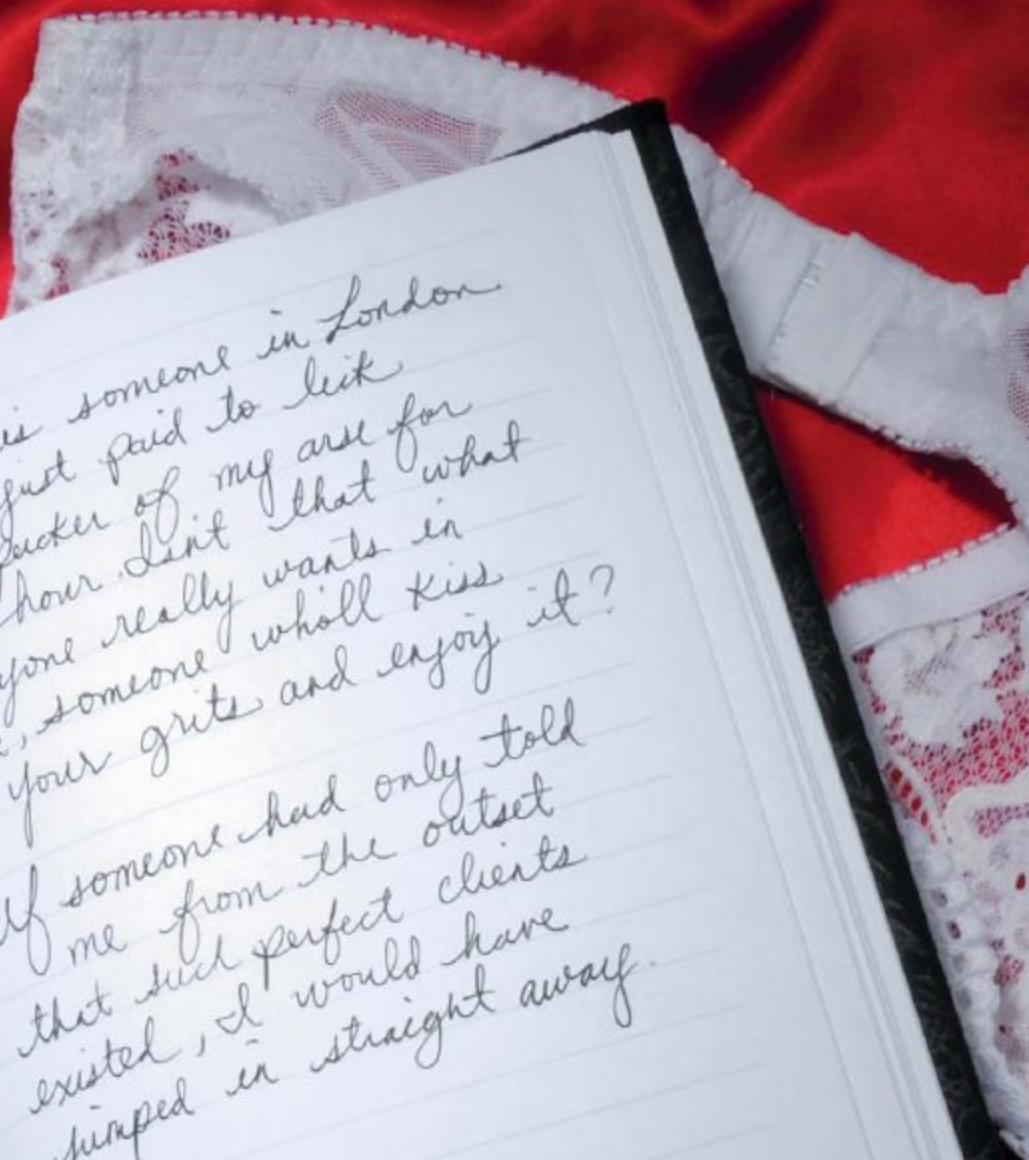 is someone in London
just paid to lick
pucker of my arse for
hour. Isn't that what
yone really wants in
, someone who'll kiss
your grits and enjoy it?
If someone had only told
me from the outset
that such perfect clients
existed, I would have
jumped in straight away.